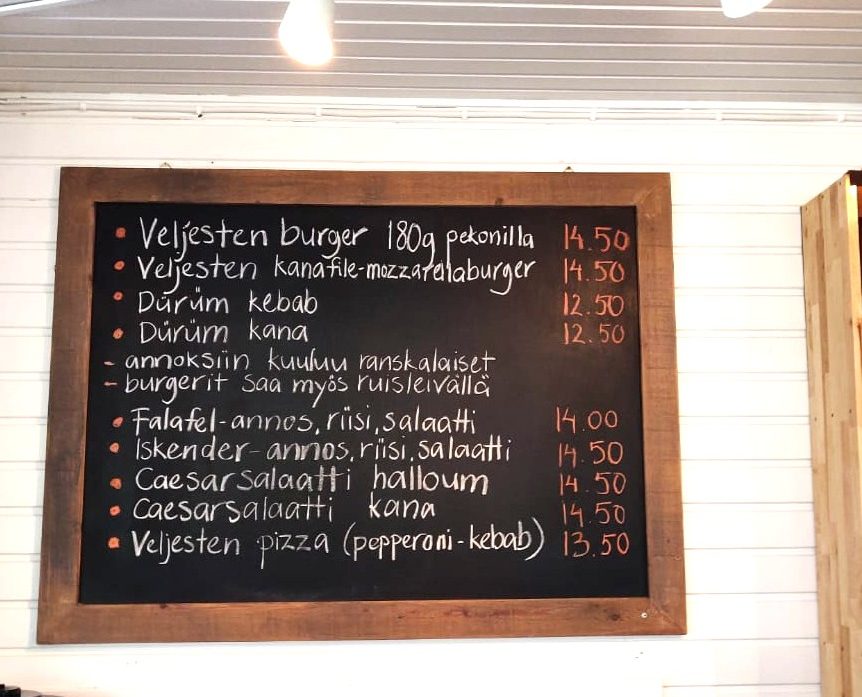 • Veljesten burger 180g pekonilla 14.50
• Veljesten kanafile-mozzarelaburger 14.50
• Dürüm kebab 12.50
• Dürüm kana 12.50
- annoksiin kuuluu ranskalaiset
- burgerit saa myös ruisleivällä
• Falafel-annos, riisi, salaatti 14.00
• Iskender-annos, riisi, salaatti 14.50
• Caesarsalaatti halloum 14.50
• Caesarsalaatti kana 14.50
• Veljesten pizza (pepperoni-kebab) 13.50